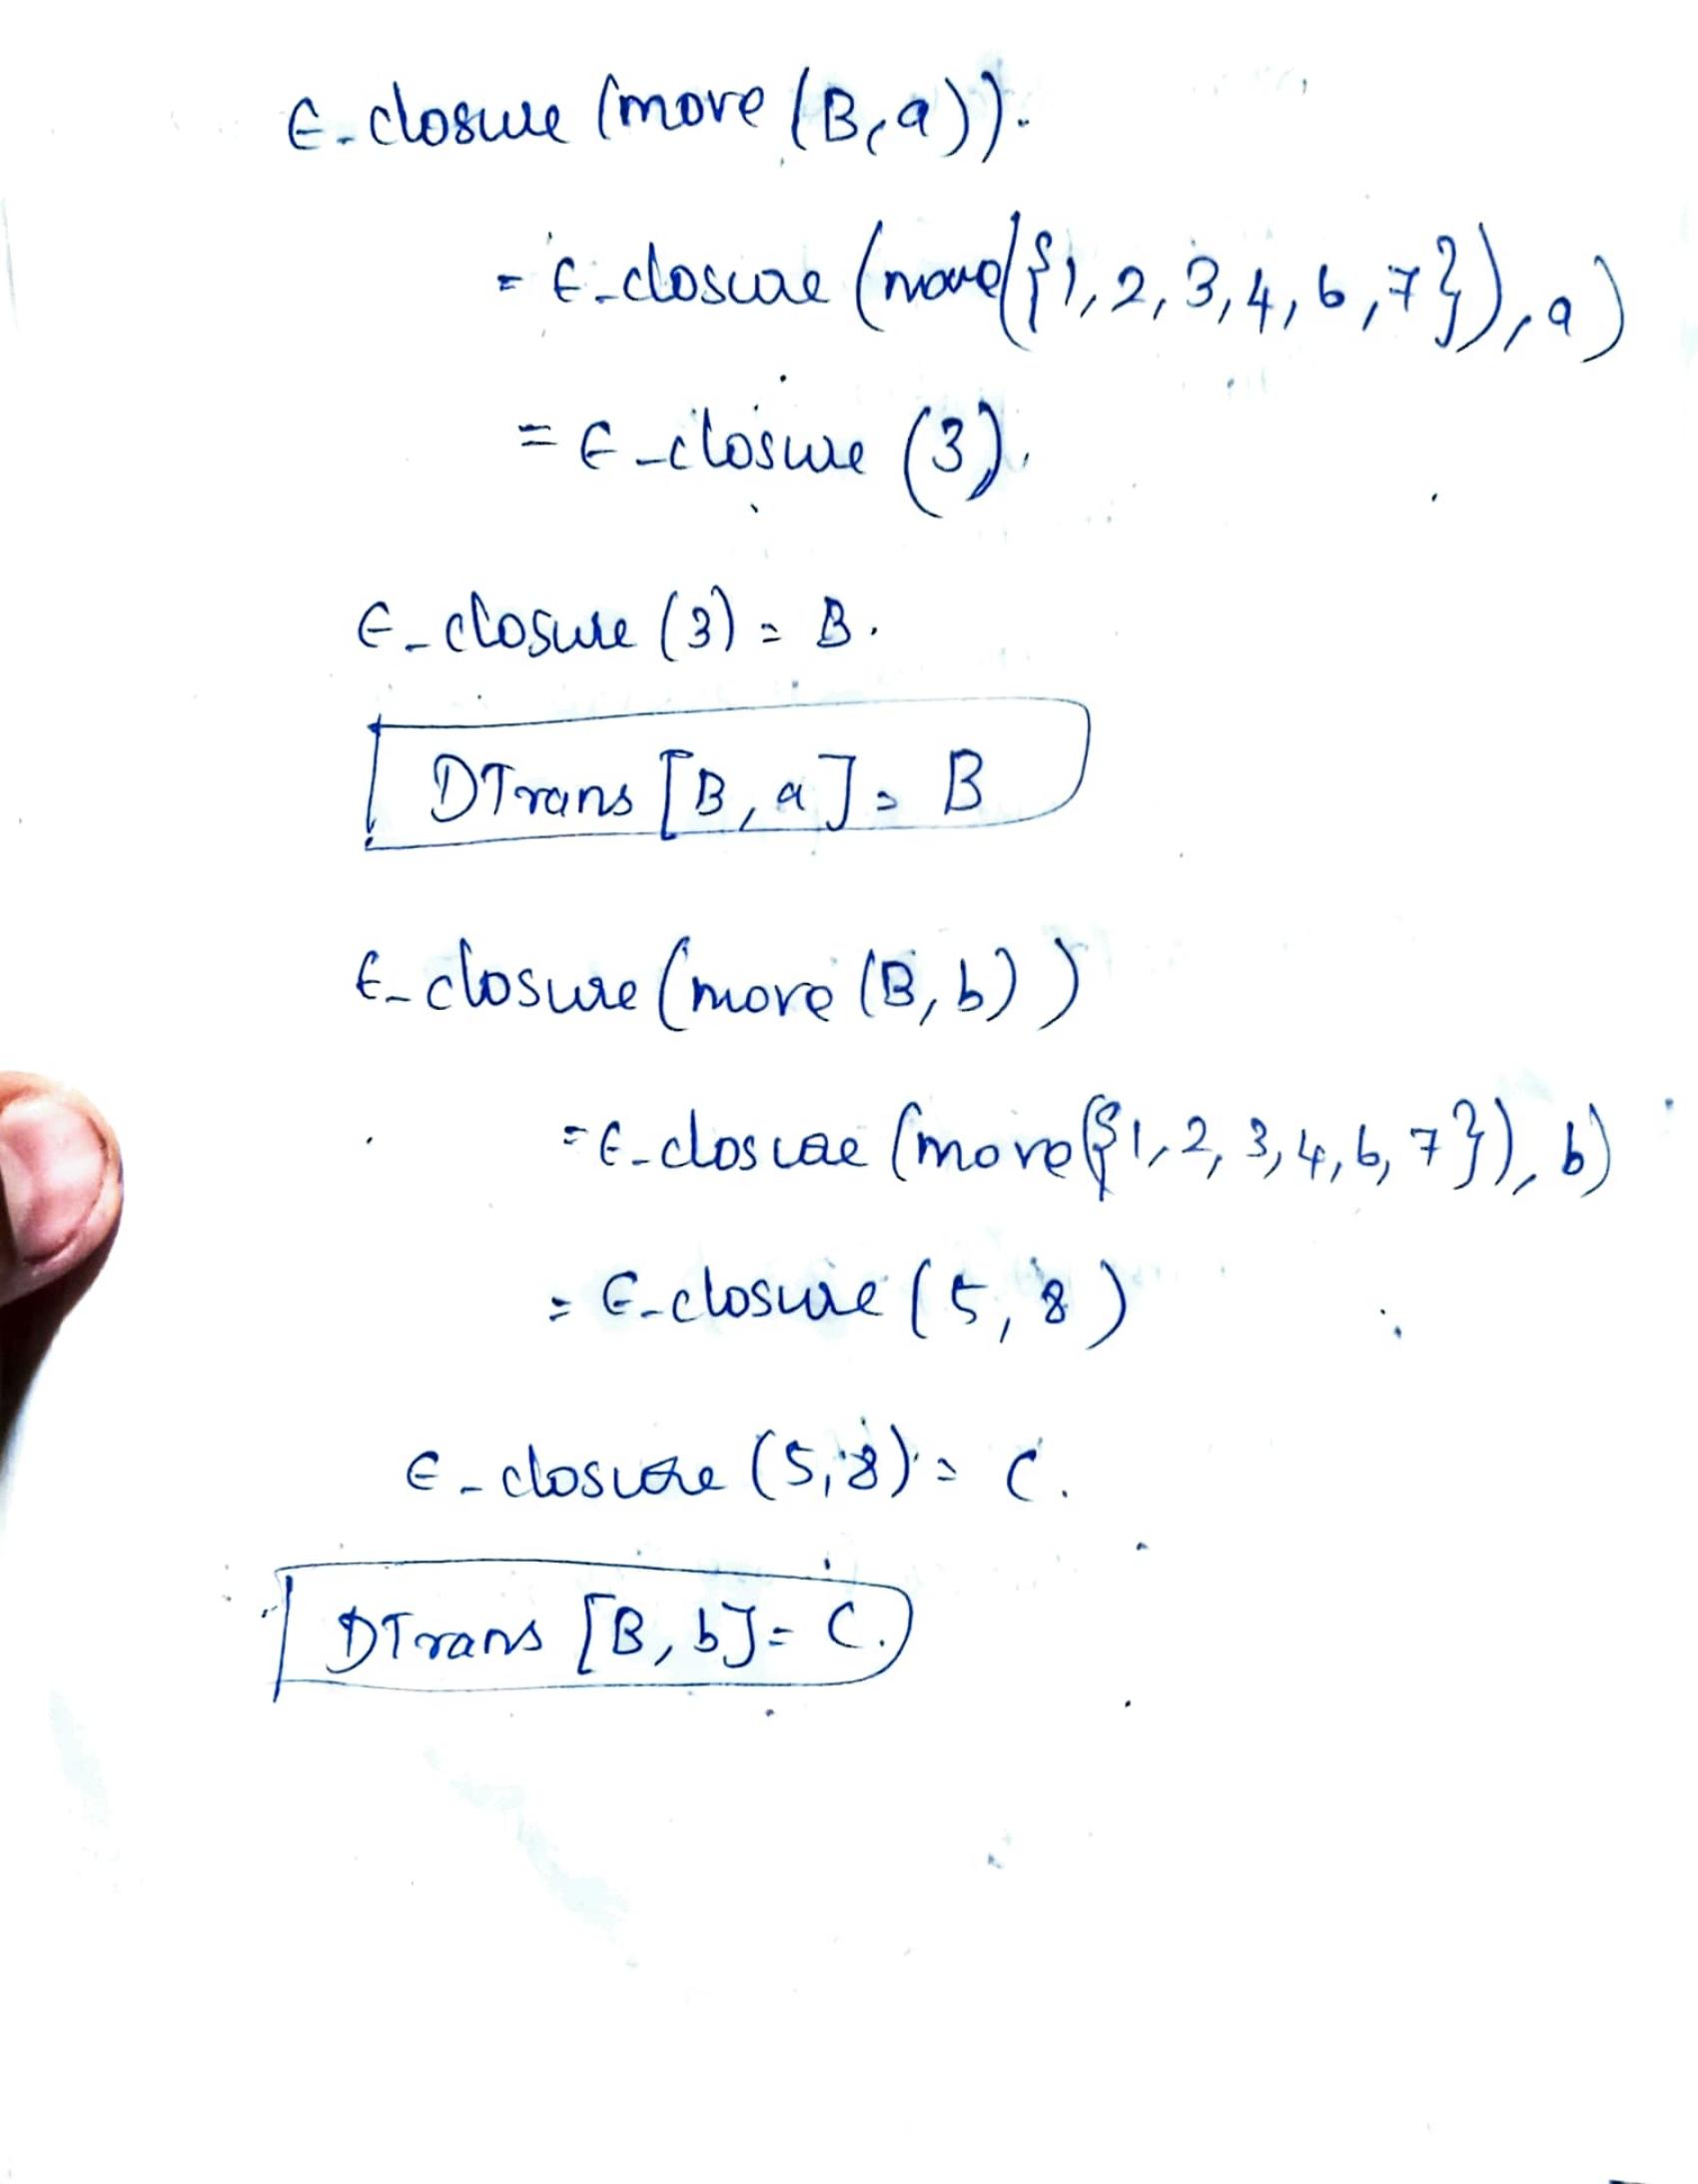 ε-closure (move (B,a)).
= ε-closure (move({1,2,3,4,6,7}),a)
= ε-closure (3).
ε-closure (3) = B.
DTrans [B,a] = B
ε-closure (move (B,b))
= ε-closure (move({1,2,3,4,6,7}),b)
= ε-closure (5,8)
ε-closure (5,8) = C.
DTrans [B,b] = C.